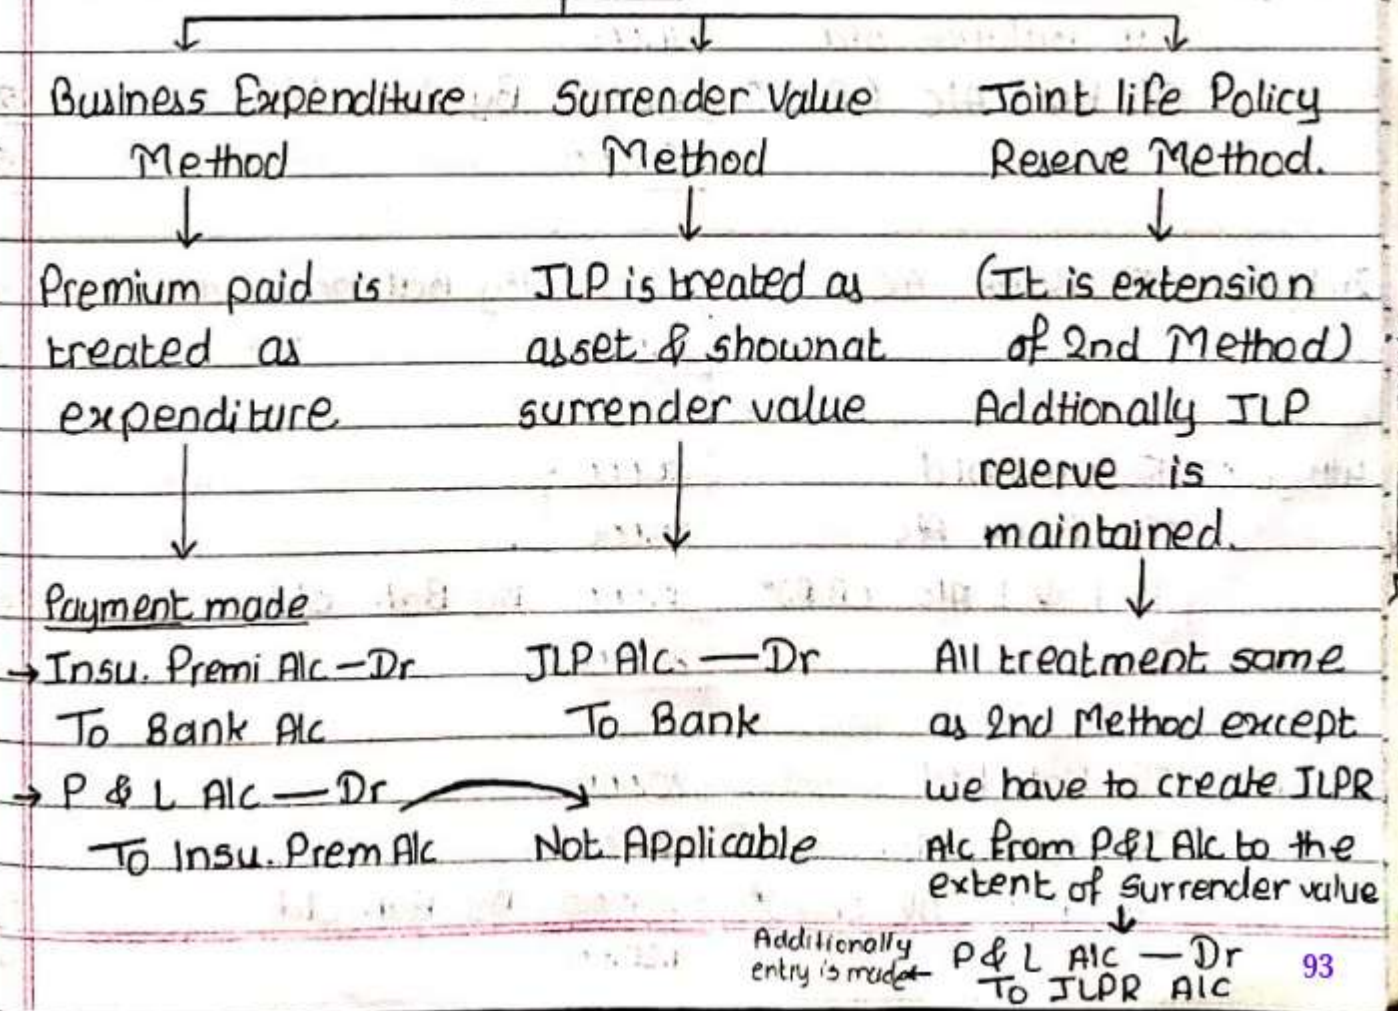 Business Expenditure
Method
Premium paid is
treated as
expenditure
Payment made
→ Insu. Premi A/c – Dr
To Bank A/c
→ P & L A/c — Dr
To Insu. Prem A/c
Surrender Value
Method
JLP is treated as
asset & shownat
surrender value
JLP A/c. — Dr
To Bank
Not Applicable
Joint life Policy
Reserve Method.
(It is extension
of 2nd Method)
Addtionally JLP
reserve is
maintained.
All treatment same
as 2nd Method except
we have to create JLPR
A/c from P&L A/c to the
extent of surrender value
Additionally
entry is made←
P & L A/c — Dr
To JLPR A/c
93